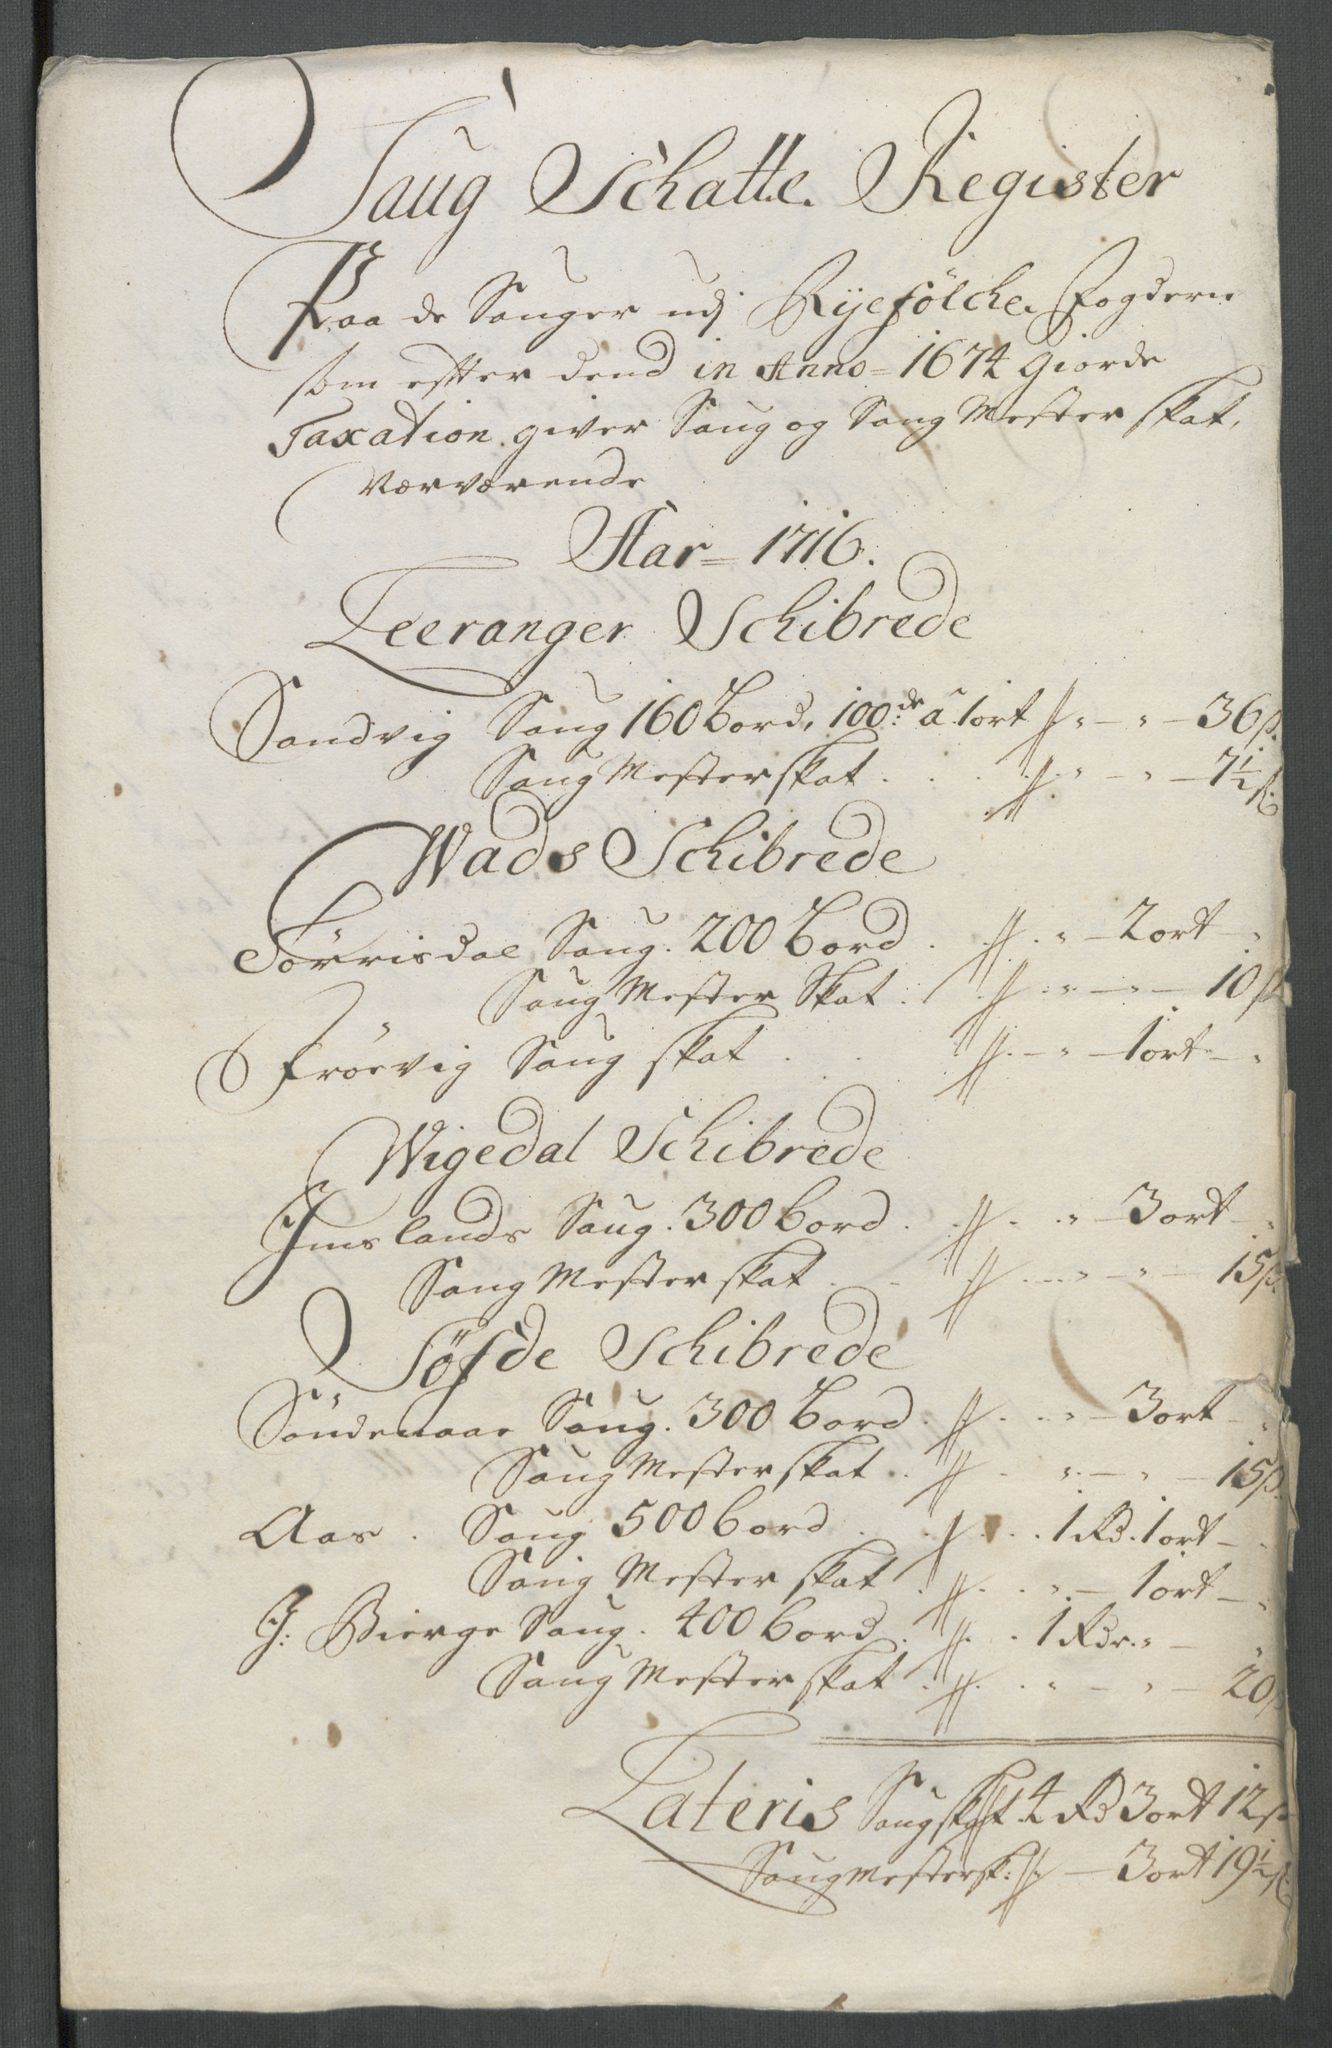 Saug Schatte Register
Paa de Sauger udj Ryefölche Fogderie
som effter dend in Anno = 1674 giorde
Taxation giver Saug og Saug Mester skat,
Nærværende
Aar = 1716.
Leeranger Schibrede
Sandvig Saug 160 Bord, 100:de â 1 ort # " — " — 36 ß.
Saug Mester skat . . . # " — " — 7½ ß:
Wads Schibrede
Törrisdal Saug. 200 Bord . # . " — 2 ort — "
Saug Mester Skat . # . " — " — 10 ß
Fröevig Saug skat . . # . — " — 1 ort — "
Wigedal Schibrede
Imslands Saug. 300 bord . # . . " — 3 ort — "
Saug Mester skat . . # . . . " — " — 15 ß.
Söfde Schibrede
Söndenaae Saug. 300 Bord . # . . . " — 3 ort — "
Saug Mester skat . # . " — " — 15 ß.
Aas . Saug 500 bord . . # . . . 1 Rd. 1 ort — .
Saug Mester skat . # . . " — 1 ort — "
J: Bierge Saug. 400 bord . # . . 1 Rdr. " — "
Saug Mester skat . # . . " — " — 20 ß
Lateris Saug skat # 4 Rd 3 ort 12 ß
Saugmestersk: # — 3 ort 19½ ß: